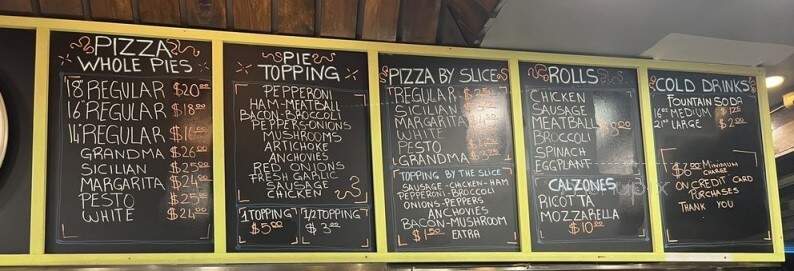 PIZZA
WHOLE PIES
18" REGULAR $20.00
16" REGULAR $18.00
14" REGULAR $16
GRANDMA $26.00
SICILIAN $25.00
MARGARITA $24.00
PESTO $25
WHITE $24.00
PIE
TOPPING
PEPPERONI
HAM-MEATBALL
BACON-BROCCOLI
PEPPERS-ONIONS
MUSHROOMS
ARTICHOKE
ANCHOVIES
RED ONIONS
FRESH GARLIC
SAUSAGE
CHICKEN
1 TOPPING
$5.00
1/2 TOPPING
$3.00
PIZZA BY SLICE
REGULAR
SICILIAN
MARGARITA
WHITE
PESTO
GRANDMA
TOPPING BY THE SLICE
SAUSAGE-CHICKEN-HAM
PEPPERONI-BROCCOLI
ONIONS-PEPPERS
ANCHOVIES
BACON-MUSHROOM
$1.50 EXTRA
ROLLS
CHICKEN
SAUSAGE
MEATBALL
BROCCOLI
SPINACH
EGGPLANT
CALZONES
RICOTTA
MOZZARELLA
$10.00
COLD DRINKS
FOUNTAIN SODA
16oz MEDIUM $1.75
21oz LARGE $2.00
$6.00 MINIMUM
CHARGE
ON CREDIT CARD
PURCHASES
THANK YOU